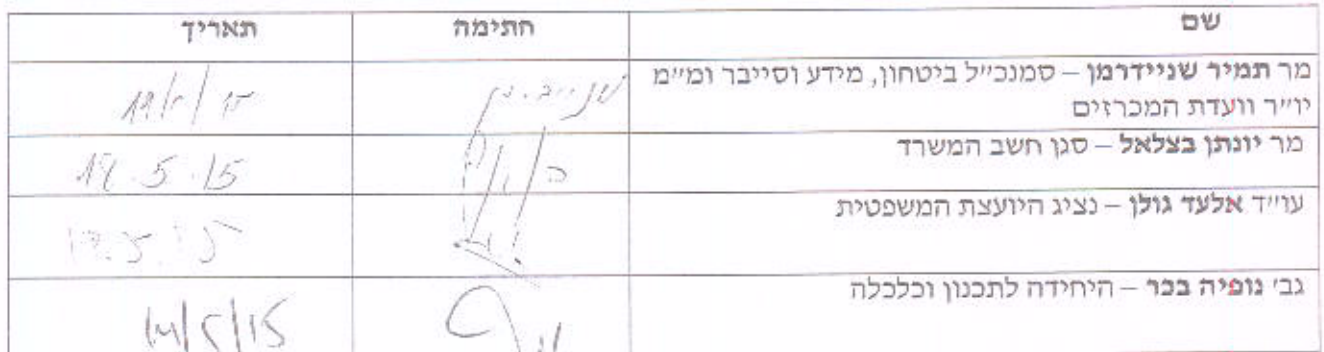 שם חתימה תאריך
מר תמיר שניידרמן – סמנכ״ל ביטחון, מידע וסייבר ומ״מ
יו״ר וועדת המכרזים
מר יונתן בצלאל – סגן חשב המשרד
עו״ד אלעד גולן – נציג היועצת המשפטית
17.5.15
גב׳ נופיה בכר – היחידה לתכנון וכלכלה